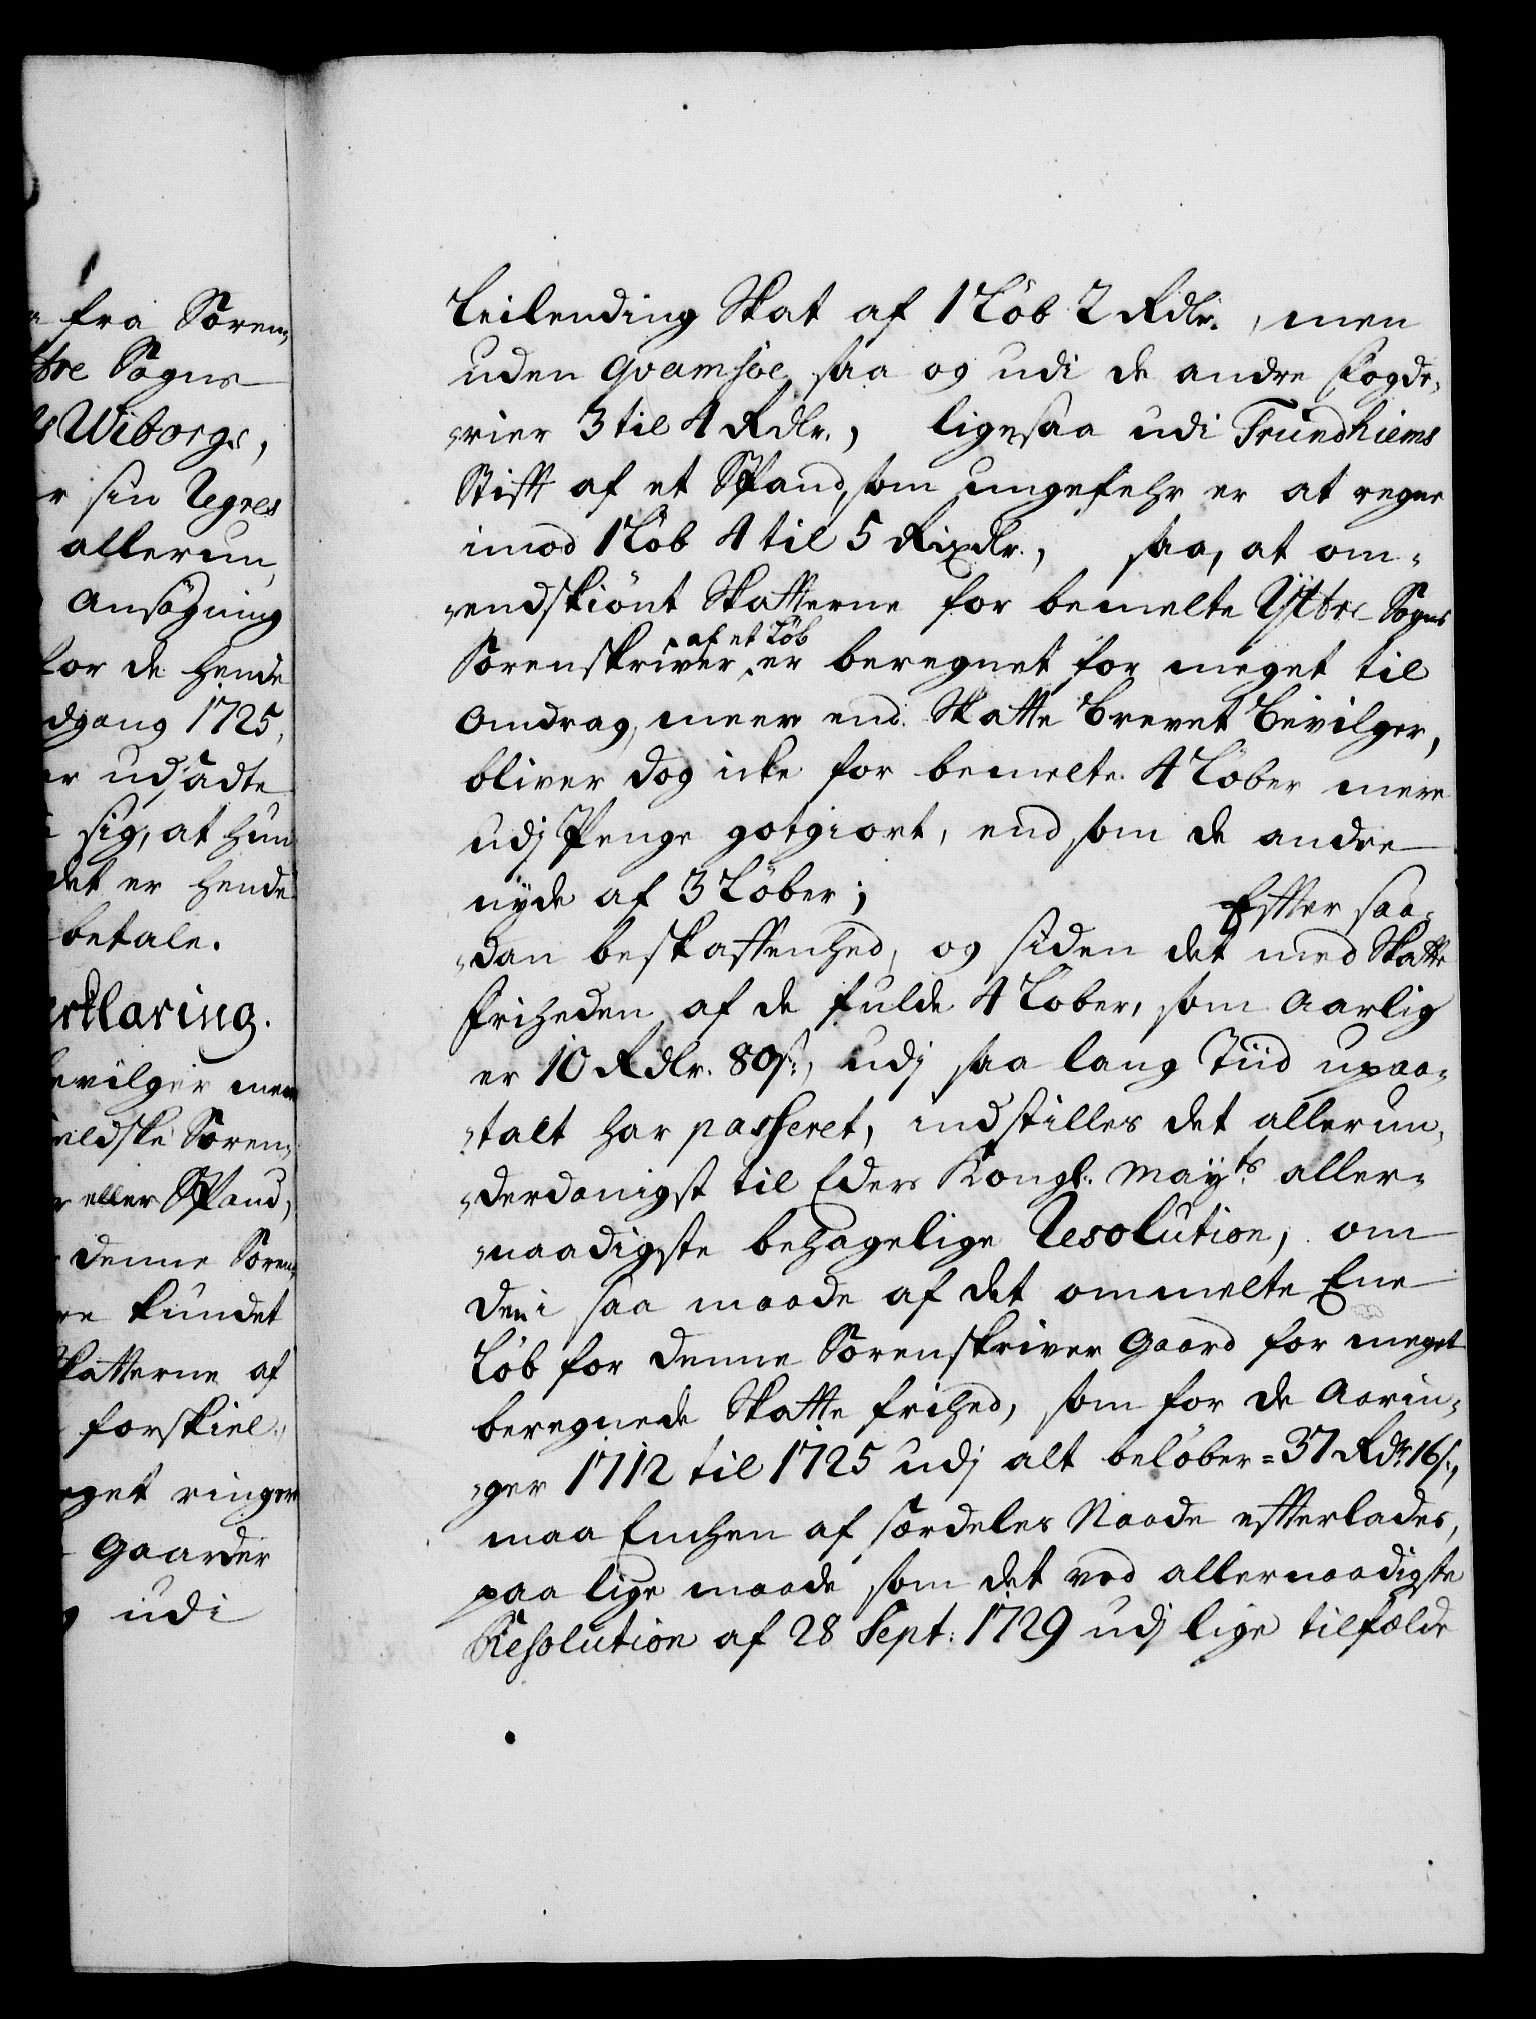 fra Soren,
tre Sogns
Wiborgs,
r sin Regres
allerun,
Ansøgning
for de hende
dgang 1725,
er udsadte
sig, at hun
det er hende
betale.
erklaring.
bevilger mere
eldske Soren,
eller Spand,
denne Soren,
re kundet
Skatterne af
forskiel,
eget ringere
Gaarder
udi
Leilending Skat af 1 Löb 2 Rdlr., men
uden Qvamsøe, saa og udi de andre Fogde,
,rier 3 til 4 Rdlr., ligesaa udi Trundhiems
Stift af et Spand, som ungefehr er at regne
imod 1 Löb 4 til 5 Rixdlr., saa, at om,
,endskiönt Skatterne for bemelte Ÿttre Sogns
af et Löb
Sorenskriver er beregnet for meget til
Omdrag, meere end Skatte Brevet Bevilger,
bliver dog icke for bemelte 4 Löber mere
udj Penge gotgiort, end som de andre
nÿde af 3 Löber; Effter saa,
,dan beskaffenhed, og siden det med Skatte
friheden af de fulde 4 Löber, som Aarlig
er 10 Rdlr. 80 s:, udj saa lang Tiid upaa,
,talt har passeret, indstilles det allerun,
,derdanigst til Eders Kongl: Mayts aller,
,naadigste behagelige Resolution, om
den i saa maade af det ommelte Ene
Löb for denne Sorenskriver Gaard for meget
beregnede Skatte frihed, som for de Aarin,
,ger 1712 til 1725 udj alt belöber = 37 Rdr 16 s.,
maa Enchen af særdeles Naade effterlades,
paa lige maade som det ved allernaadigste
Resolution af 28 Sept: 1729 udj lige tilfælde